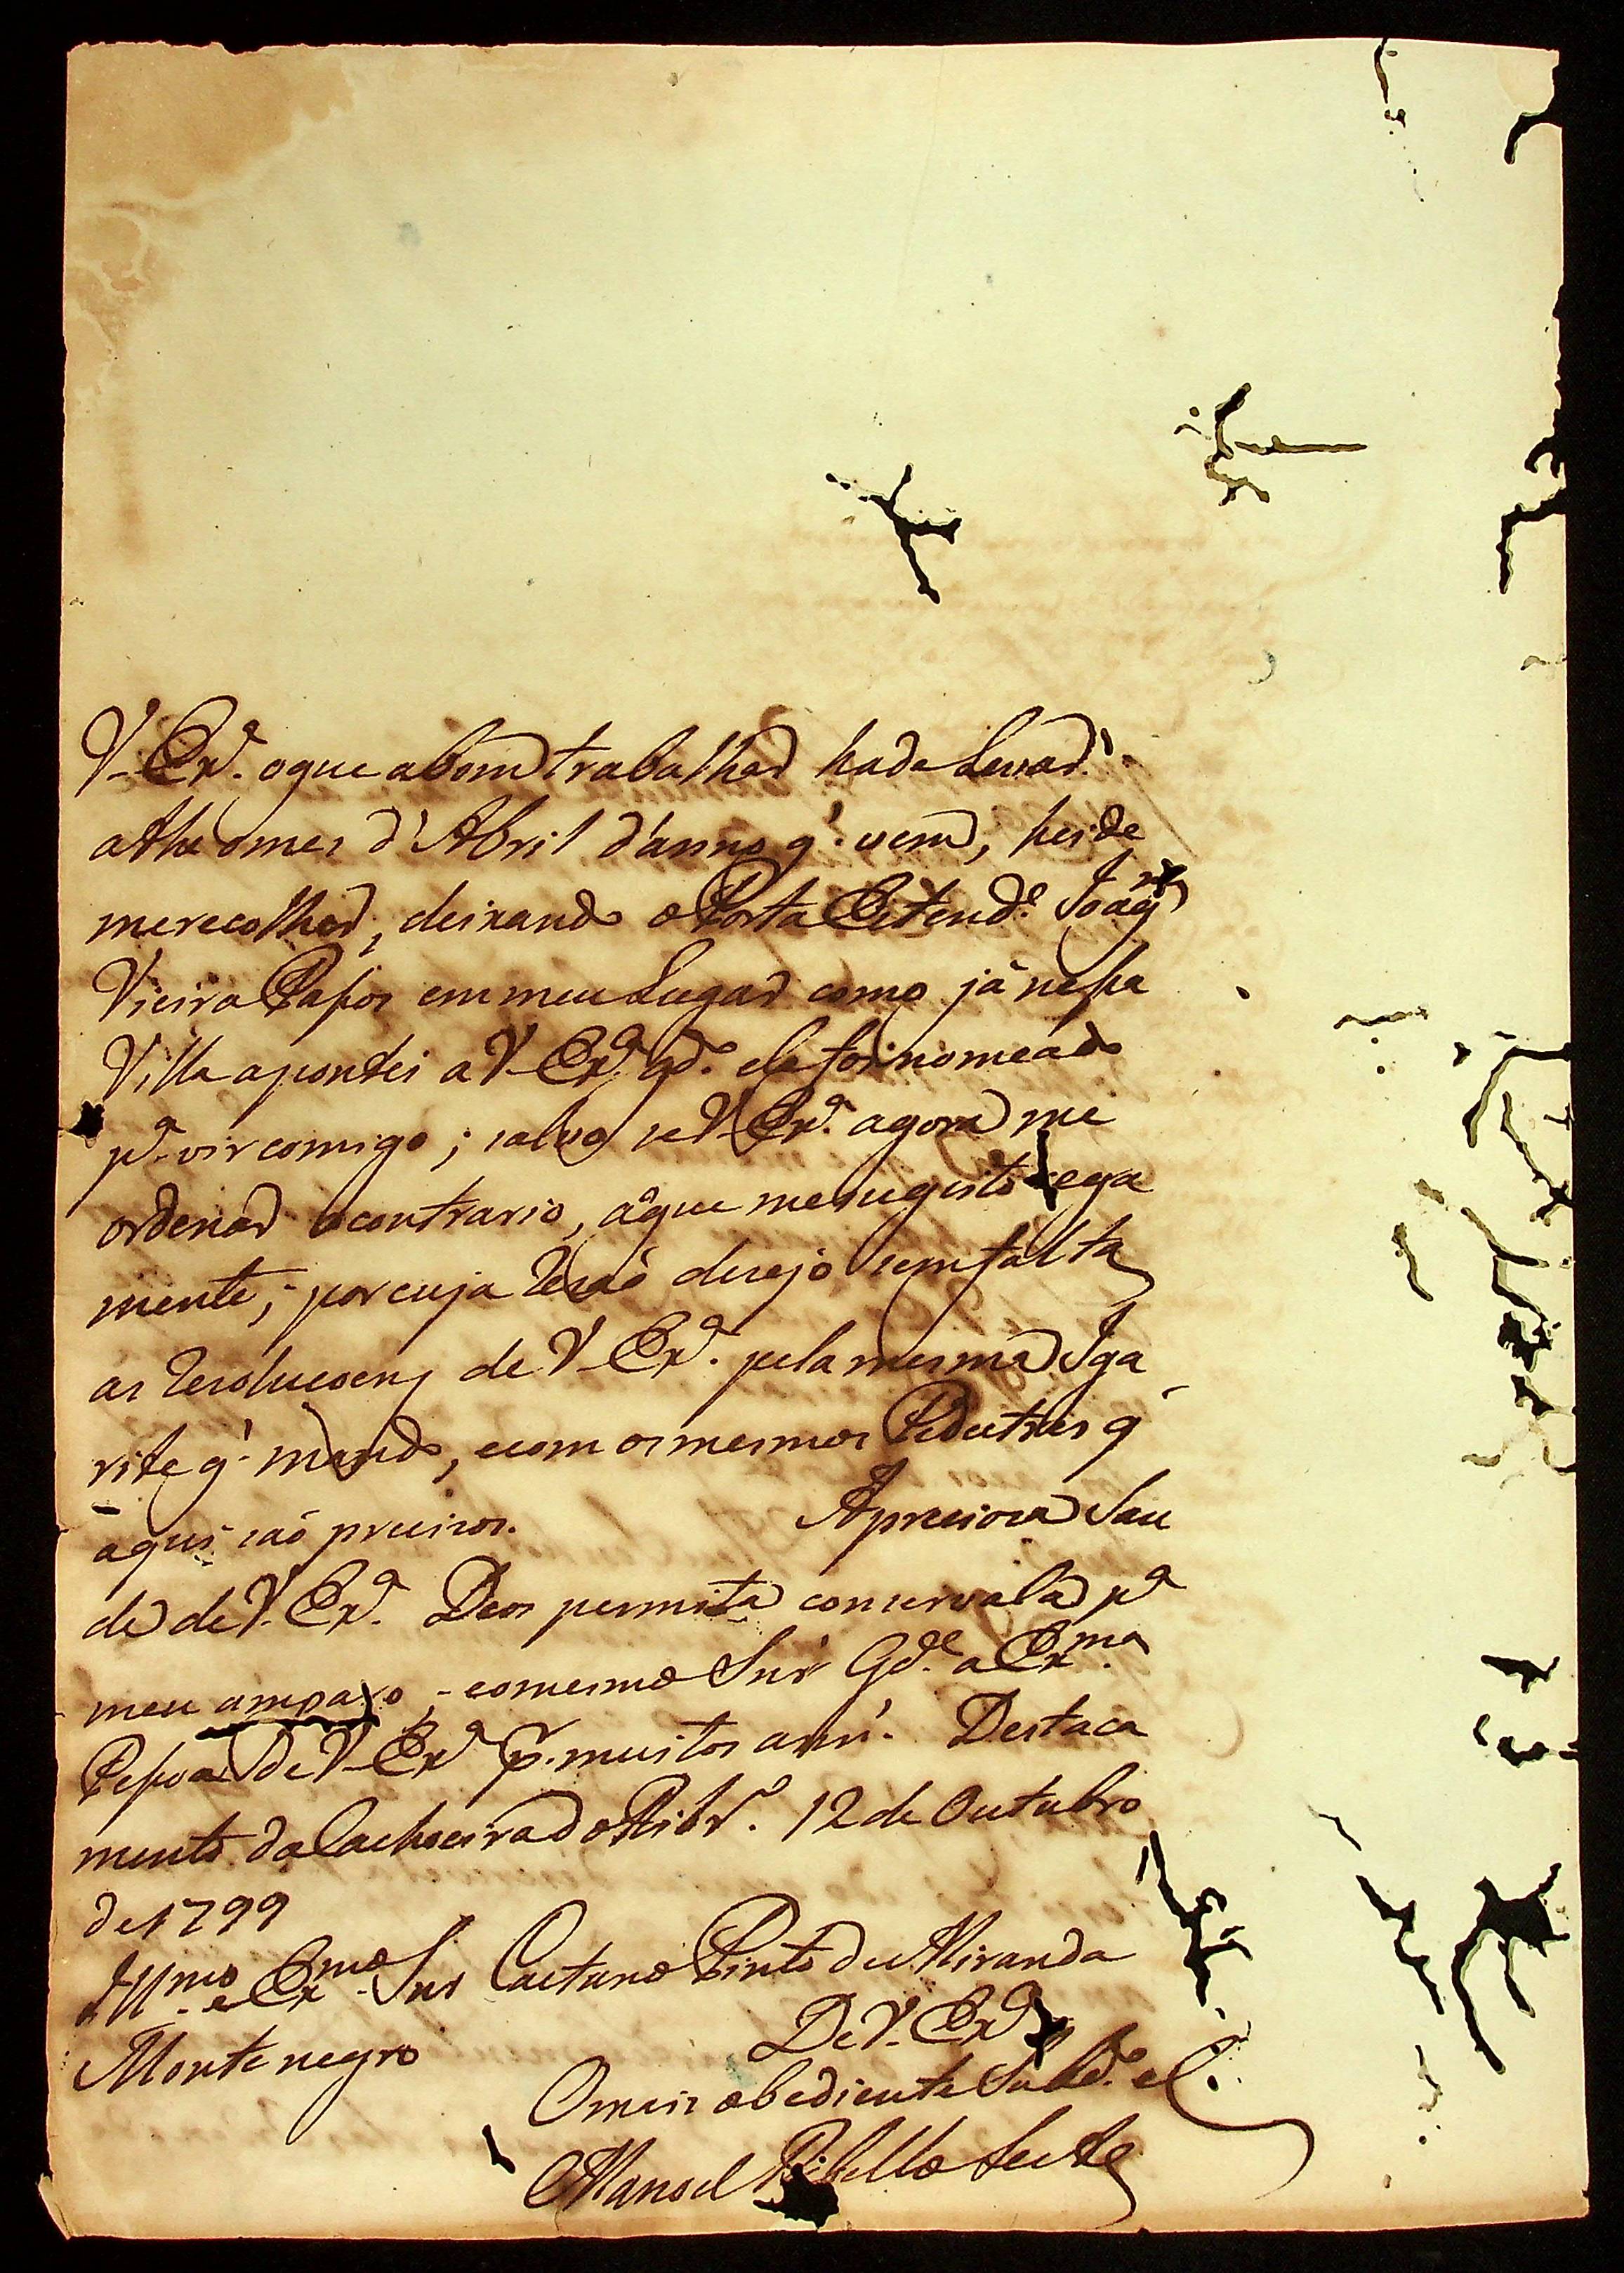 V. Exª. oque abom trabalhar hade Levar.
athe omes d'Abril d'anno q'. vem, heide
merecolher, deixando o Porta Estende. Joaqm
Vieira Passos emmeu Lugar como já nessa
Villa apontei a V Exª. qdo. ele foi nomeado
pª. vir comigo; salvo se V Exª. agora me
ordenar o contrario, aque mesugeito sega
mente; por cuja rezaõ desejo sem falta
as rezolucoens de V Exª. pela mesma Iga
rite q'. mando, ecom os mesmos Pedestres q'
aqui saõ precizos. Apreciosa Sau
de de V. Exª. Deos permita conservala pª
meu amparo, eomesmo Snr' Gde. a Exma.
Pessoa De V Exª pr. muitos ann'. Destaca
mento da Cachoeira do Ribrº. 12 de Outubro
de 1799
Illmo. e Exmo. Snr Caetano Pinto de Miranda
Montenegro
De V. Exª
Omais obediente Subdo. e C.
Manoel Rebello Leite